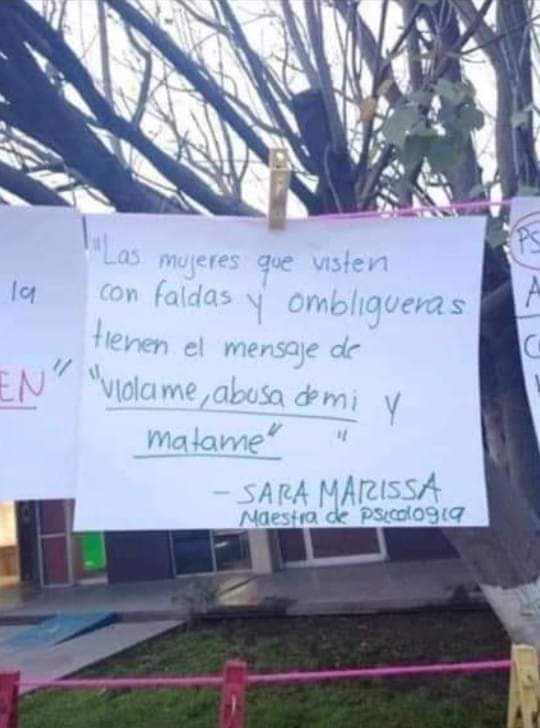 "Las mujeres que visten
con faldas y ombligueras
tienen el mensaje de
"violame, abusa de mi y
matame" "
- SARA MARISSA
Maestra de psicologia
la
EN"
PS
A
C